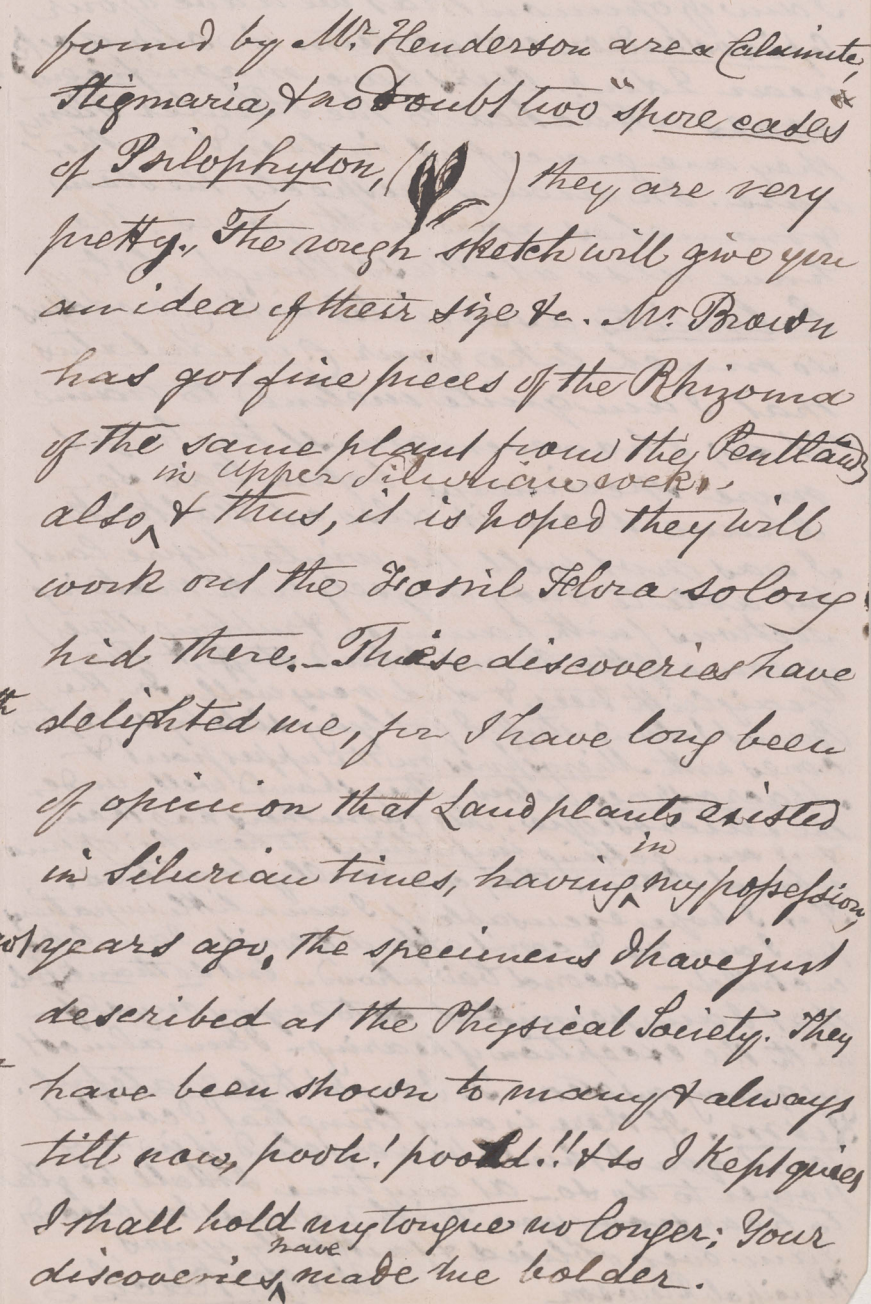 found by Mr. Henderson are a Calamite,
Stigmaria, & no doubt two "spore cases"
of Psilophyton, ( ) they are very
pretty., The rough sketch will give you
an idea of their size &c. Mr. Brown
has got fine pieces of the Rhizoma
of the same plant from the Pentlands
in Upper Silurian rocks,
also ^ & thus, it is hoped they will
work out the Fossil Flora so long
hid there. _ These discoveries have
delighted me, for I have long been
of opinion that Land plants existed
in
in Silurian times, having ^ my possession,
years ago, the specimens I have just
described at the Physical Society. They
have been shown to many & always
till now, pooh! poohd!! & so I kept quiet
I shall hold my tongue no longer; Your
have
discoveries ^ made me bolder.